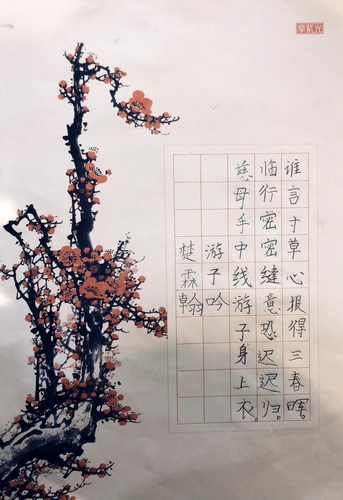 楚霖翰
游子吟
慈母手中线游子身上衣。
临行密密缝意恐迟迟归。
谁言寸草心报得三春晖。